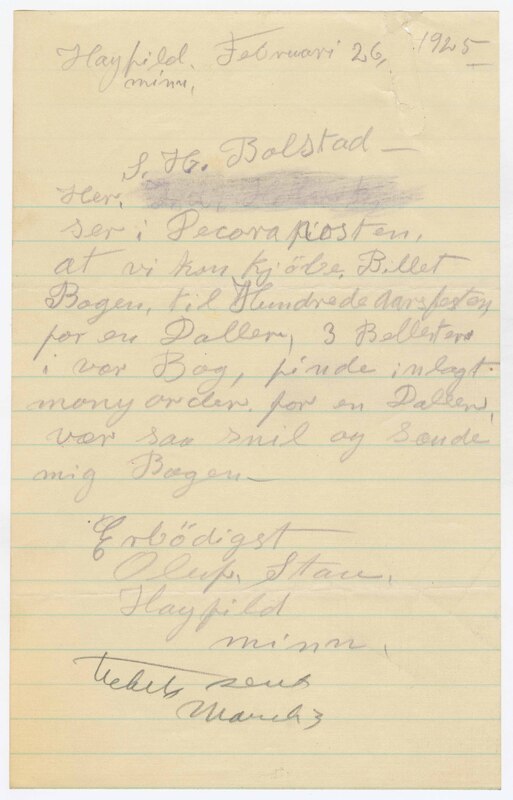 Hayfild. Februari 26, 1925
minn,
S. H. Bolstad —
Her.
ser i Decoraposten,
at vi kan kjöbe Billet
Bogen, til Hundredeaarsfesten
for en Daller, 3 Belleter
i vær Bog, finde inlagt
monyorder for en Daller,
vær saa snil og sænde
mig Bogen —
Erbödigst
Oluf. Stau.
Hayfild
minn,
Tickets sent
March 3